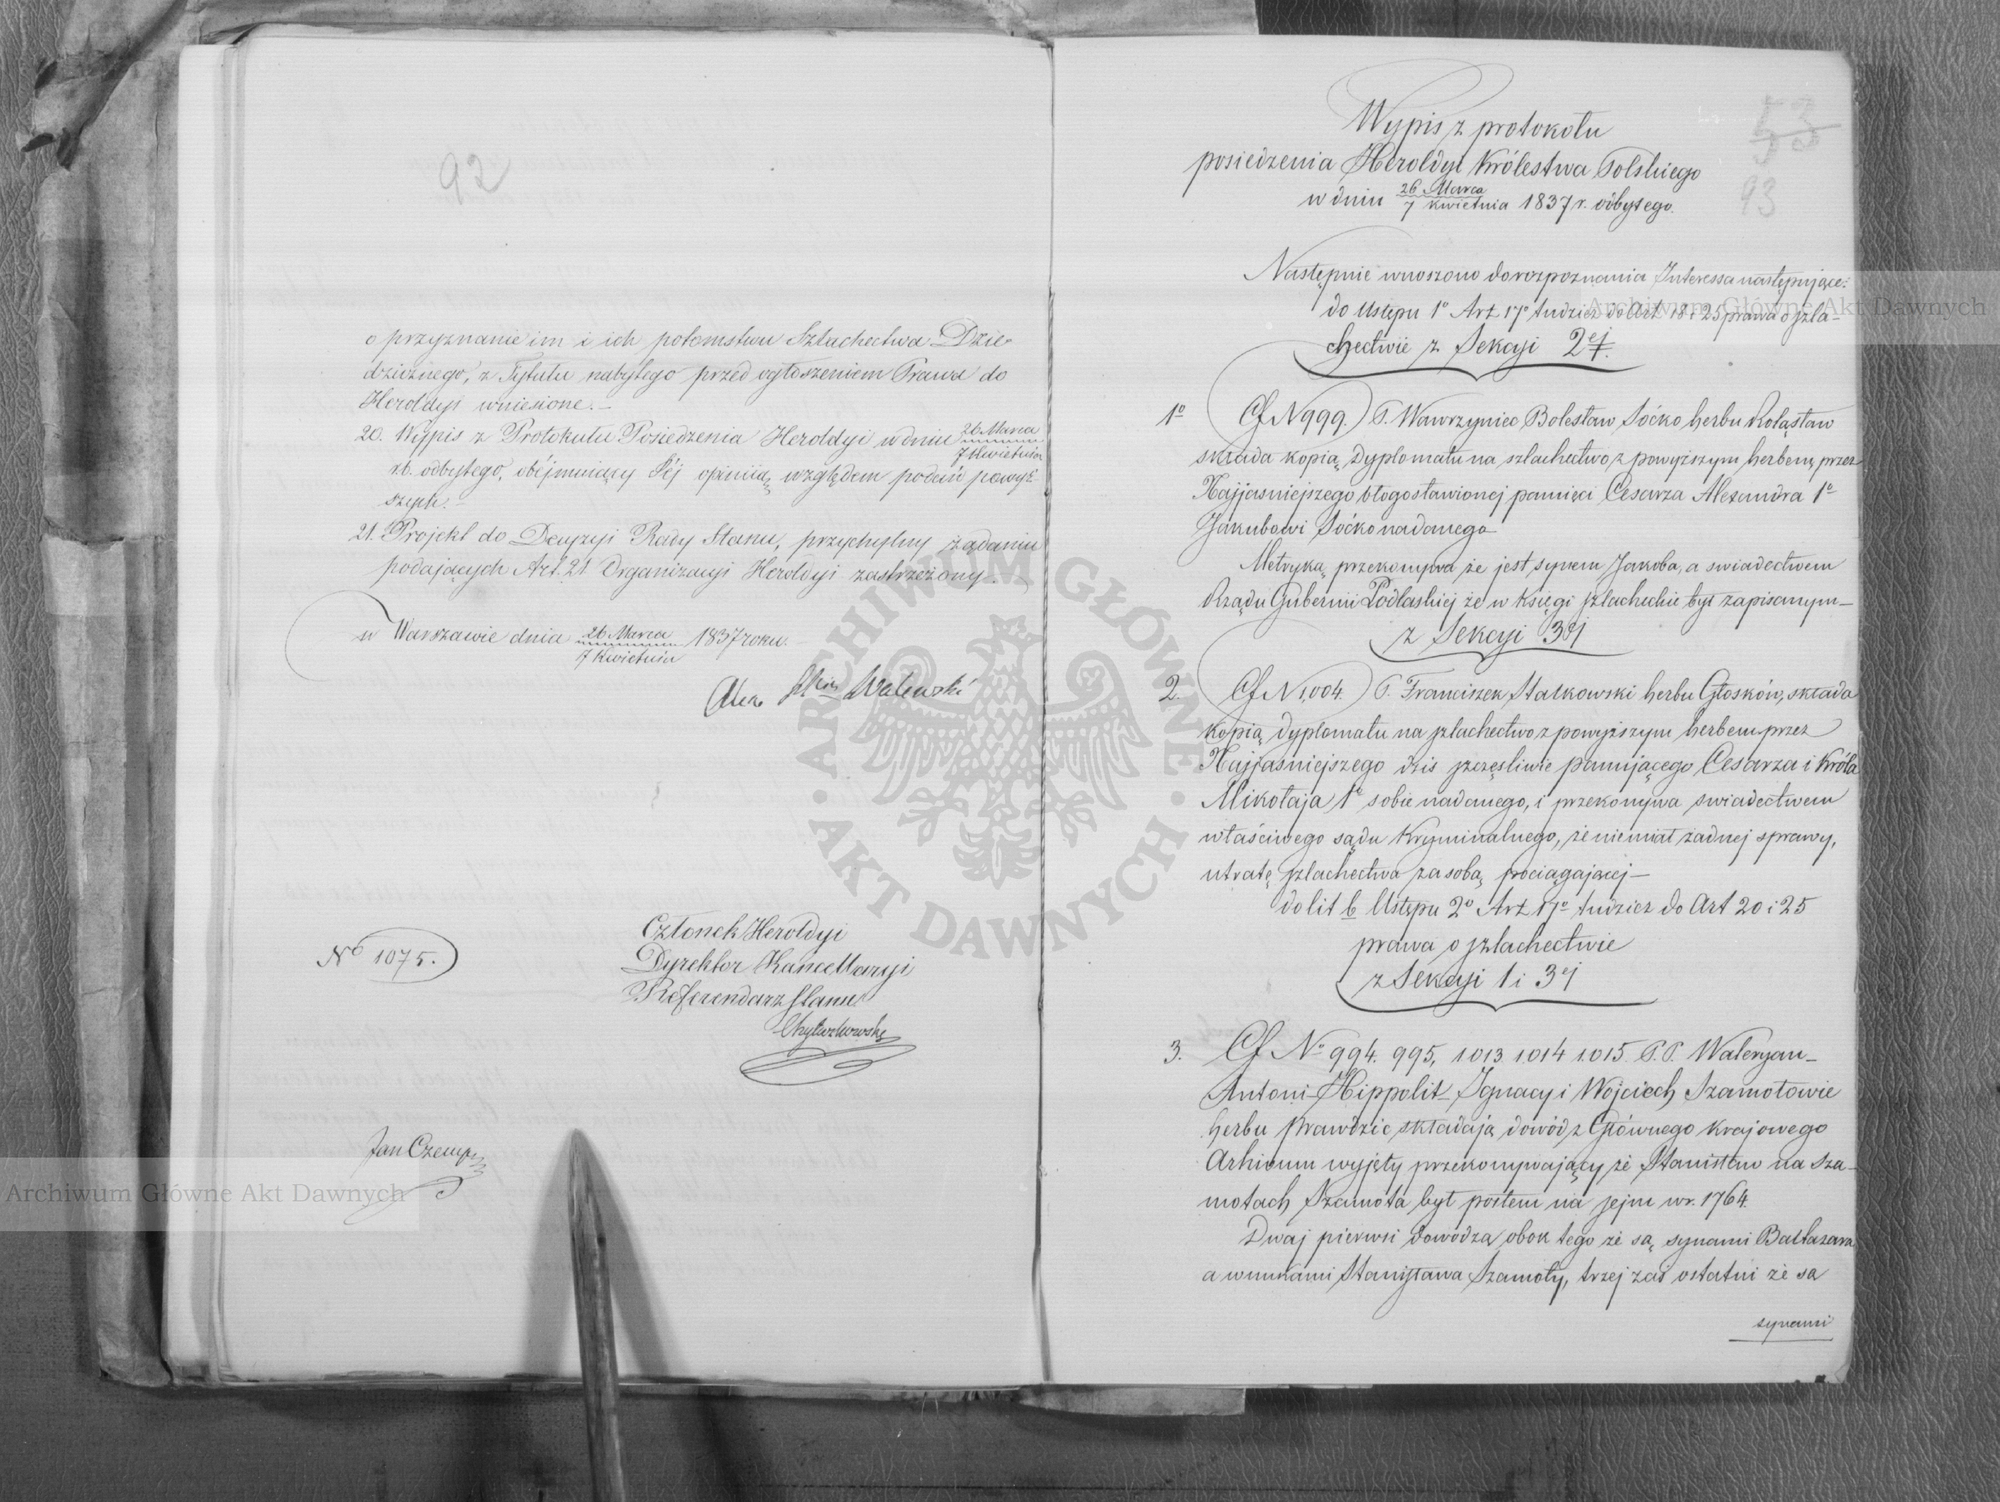 92
o przyznanie im i ich potomstwu Szlachectwa Dzie-
dzicznego, z Tytułu nabytego przed ogłoszeniem Prawa do
Heroldyi wniesione.—
20. Wypis z Protokułu Posiedzenia Heroldyi w dniu 26 Marca / 7 Kwietnia
rb. odbytego, obejmujący Jéj opinią, względem podań powyż-
szych.—
21. Projekt do Decyzyi Rady Stanu, przychylny żądaniu
podających Art. 21 Organizacyi Heroldyi zastrzeżony.—
w Warszawie dnia 26 Marca / 7 Kwietnia 1837 roku.—
Alex Walewski
Członek Heroldyi
Dyrektor Kancellaryi
Referendarz Stanu
No 1075.
Jan
53
93
Wypis z protokołu
posiedzenia Heroldyi Królestwa Polskiego
w dniu 26 Marca / 7 Kwietnia 1837 r. odbytego.
Następnie wnoszono do rozpoznania Interessa następujące:
do Ustępu 1o Art 17o tudzież do Art 18 i 25 prawa o szla-
chectwie z Sekcyi 2ej.
1o Cf N 999.) P. Wawrzyniec Bolesław Soćko herbu Kołąstaw
składa kopią Dyplomatu na szlachectwo z powyższym herbem, przez
Najjaśniejszego błogosławionej pamięci Cesarza Alexandra 1o
Jakubowi Soćko nadanego
Metryką przekonywa że jest synem Jakóba, a swiadectwem
Rządu Gubernii Podlaskiej że w księgi szlacheckie był zapisanym—
z Sekcyi 3ej
2. Cf N 1,004.) P. Franciszek Stalkowski herbu Głosków, składa
kopią dyplomatu na szlachectwo z powyższym herbem przez
Najjaśniejszego dziś szczęśliwie panującego Cesarza i Króla
Mikołaja 1o sobie nadanego, i przekonywa swiadectwem
właściwego sądu Kryminalnego, że niemiał żadnej sprawy,
utratę szlachectwa za sobą pociągającej—
do lit b Ustępu 2o Art 17o tudzież do Art 20 i 25
prawa o szlachectwie
z Sekcyi 1 i 3ej
3. Cf No 994. 995, 1.013 1.014 1.015. P.P. Waleryan—
Antoni Hippolit Ignacy i Wojciech Szamotowie
herbu Prawdzic składają dowód z Głównego krajowego
Arhiwum wyjęty przekonywający że Stanisław na Sza-
motach Szamota był posłem na sejm w r. 1764.
Dwaj pierwsi dowodzą obok tego że są synami Baltazara
a wnukami Stanisława Szamoty, trzej zaś ostatni że są
synami
ARCHIWUM GŁÓWNE AKT DAWNYCH
Archiwum Główne Akt Dawnych
Archiwum Główne Akt Dawnych